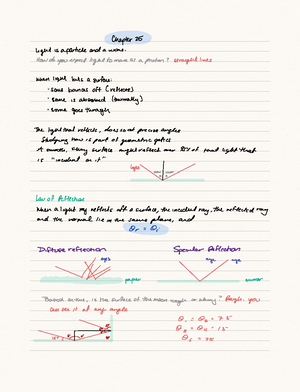 Chapter 25
Light is a particle and a wave.
How do you expect light to move as a photon? straight lines
When light hits a surface:
• some bounces off (reflects)
• some is absorbed (normally)
• some goes through
The light that reflects, does so at precise angles
Studying how is part of geometric optics
A mirror, shiny surface might reflect over 95% of total light that
is "incident on it"
light
Law of Reflection
When a light ray reflects off a surface, the incident ray, the reflected ray
and the normal lie in the same plane, and
θr = θi
Diffuse reflection
Specular Reflection
rays
rays
rays
paper
mirror
is the surface of the moon rough or shiny? Rough. you
can see it at any angle